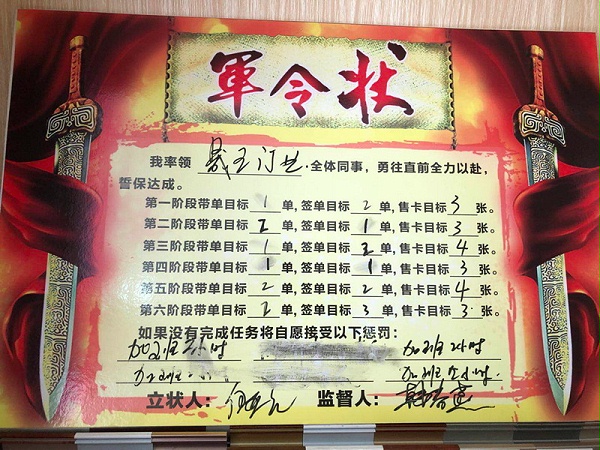 軍令状
我率领 晟王门业 全体同事，勇往直前全力以赴，
誓保达成。
第一阶段带单目标 1 单，签单目标 2 单，售卡目标 3 张。
第二阶段带单目标 2 单，签单目标 1 单，售卡目标 3 张。
第三阶段带单目标 1 单，签单目标 2 单，售卡目标 4 张。
第四阶段带单目标 1 单，签单目标 1 单，售卡目标 3 张。
第五阶段带单目标 2 单，签单目标 2 单，售卡目标 4 张。
第六阶段带单目标 2 单，签单目标 3 单，售卡目标 3 张。
如果没有完成任务将自愿接受以下惩罚：
加班 小时 加班 小时
加班 加班 小时
立状人： 监督人：